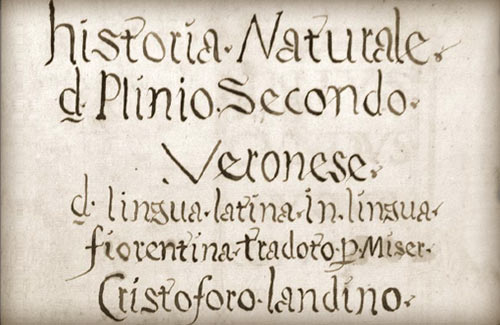 historia · Naturale ·
d. Plinio · Secondo ·
Veronese ·
d. lingua · latina · in · lingua ·
fiorentina · tradoto · p · Miser ·
Cristoforo · landino ·